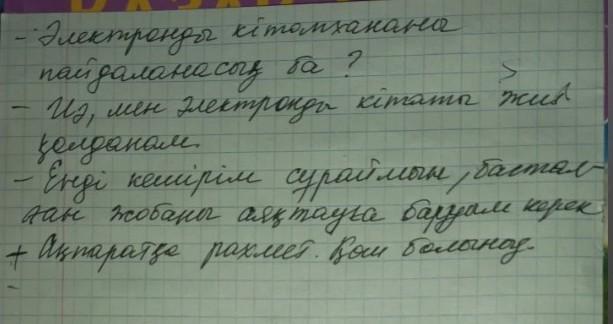 - Электронды кітапхананы
пайдаланасың ба ?
- Иә, мен электронды кітапты жиі
қолданам.
- Енді кешірім сұраймын, бастал-
ған жобаны аяқтауға баруам керек
+ Ақпаратқа рахмет. Қош болыңыз.
-